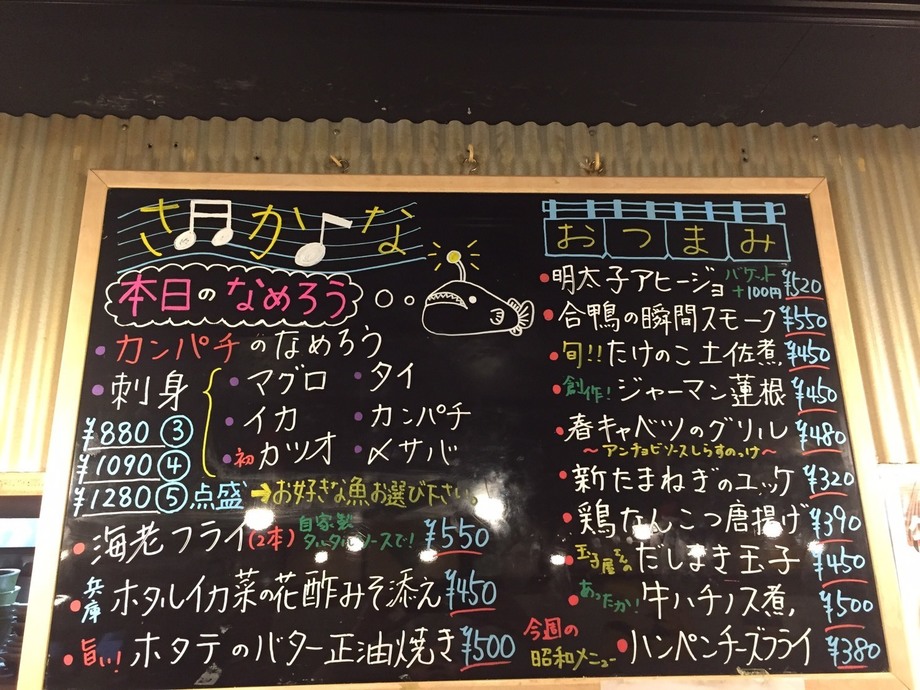 さかな
本日のなめろう
カンパチのなめろう
刺身
マグロ タイ
イカ カンパチ
初カツオ 〆サバ
¥880 ③
¥1090 ④
¥1280 ⑤ 点盛 →お好きな魚お選び下さい。
海老フライ(2本) 自家製タルタルソースで! ¥550
兵庫 ホタルイカ菜の花酢みそ添え ¥450
旨い! ホタテのバター正油焼き ¥500
おつまみ
明太子アヒージョ バケット+100円 ¥520
合鴨の瞬間スモーク ¥550
旬!!たけのこ土佐煮 ¥450
創作!ジャーマン蓮根 ¥450
春キャベツのグリル ¥480
〜アンチョビソースしらすのっけ〜
新たまねぎのユッケ ¥320
鶏なんこつ唐揚げ ¥390
玉子屋さんのだしまき玉子 ¥450
あったか!牛ハチノス煮 ¥500
今週の昭和メニュー ハンペンチーズフライ ¥380